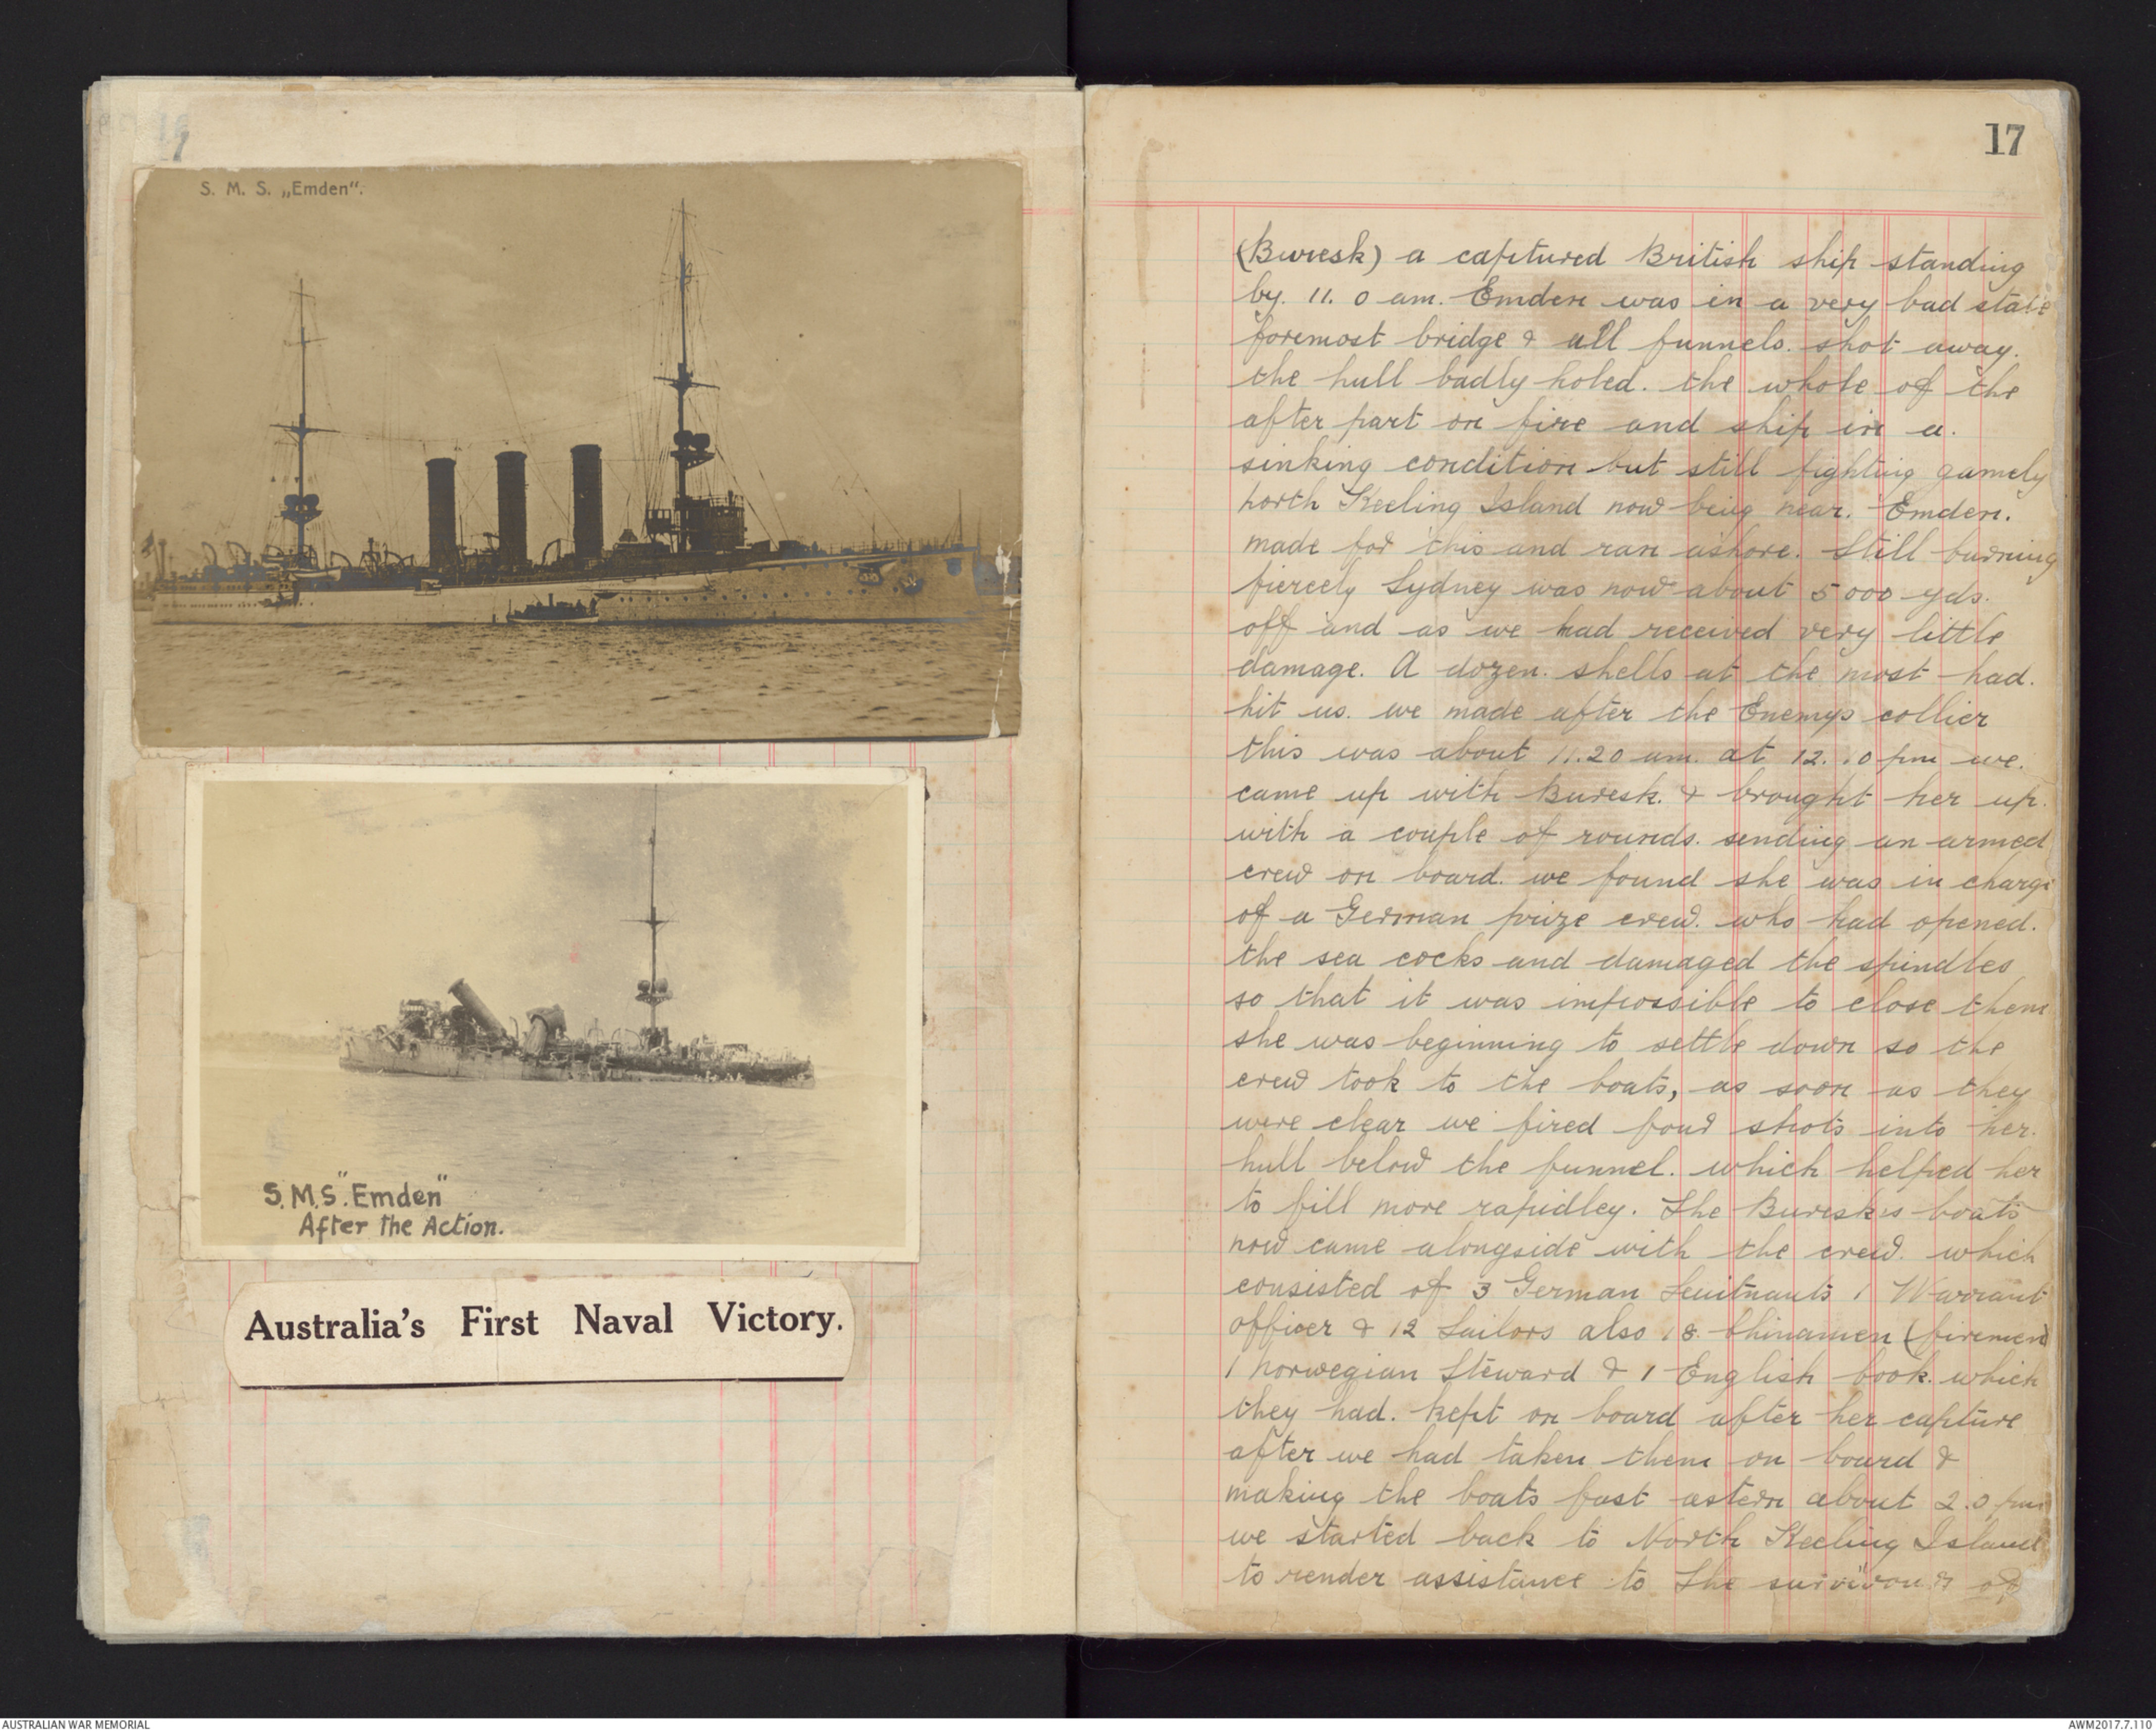 S. M. S. „Emden“.
S.M.S. "Emden"
After the Action.
Australia's First Naval Victory.
17
(Buresk) a captured British ship standing
by. 11. 0 am. Emden was in a very bad state
foremost bridge & all funnels. shot away.
the hull badly holed. the whole of the
after part on fire and ship in a.
sinking condition but still fighting gamely
north Keeling Island now being near. Emden.
made for this and ran ashore. Still burning
fiercely Sydney was now about 5000 yds.
off and as we had received very little
damage. A dozen. shells at the most had.
hit us. we made after the Enemys collier
this was about 11.20 am. at 12.10 pm we.
came up with Buresk. & brought her up.
with a couple of rounds. sending an armed
crew on board. we found she was in charge
of a German prize crew. who had opened.
the sea cocks and damaged the spindles
so that it was impossible to close them
she was beginning to settle down so the
crew took to the boats, as soon as they
were clear we fired four shots into her.
hull below the funnel. which helped her
to fill more rapidley. The Buresk's boats
now came alongside with the crew. which
consisted of 3 German Leuitnants 1 Warrant
officer & 12 Sailors also 18. Chinamen (firemen)
1 norwegian Steward & 1 English Cook. which
they had. kept on board after her capture
after we had taken them on board &
making the boats fast astern about 2.0 pm
we started back to North Keeling Island
to render assistance to The survivours of
AUSTRALIAN WAR MEMORIAL
AWM2017.7.110